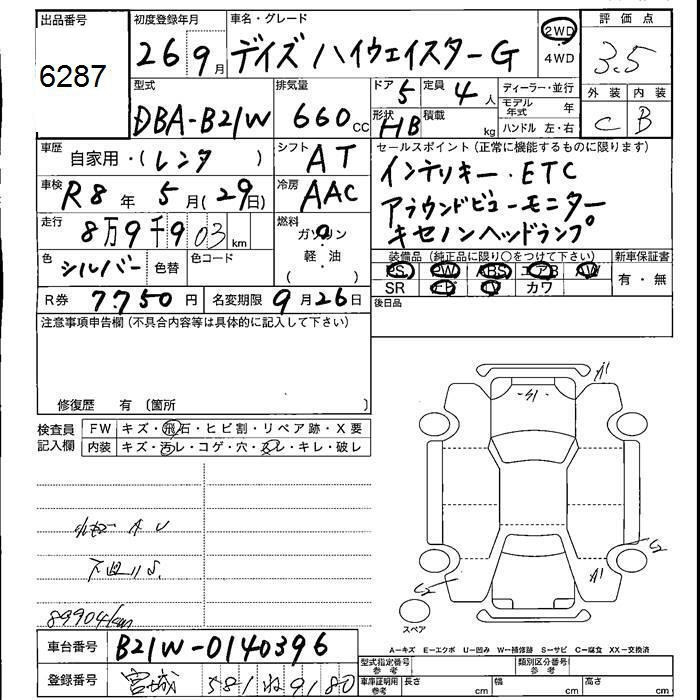 出品番号
6287
初度登録年月
26 9月
車名・グレード
デイズ ハイウェイスターG
2WD
4WD
評価点
3.5
外装 内装
C B
型式
DBA-B21W
排気量
660cc
ドア 5
定員 4人
形状 HB
積載 kg
ディーラー・並行
モデル年式 年
ハンドル 左・右
車歴 自家用・(レンタ)
シフト AT
セールスポイント(正常に機能するものに限ります)
インテリキー・ETC
アラウンドビューモニター
キセノンヘッドランプ
車検 R8年 5月(29日)
冷房 AAC
走行 8万9千903km
燃料 ガソリン
軽・油
( )
色 シルバー 色替
色コード
装備品(純正品に限り○をつけて下さい)
新車保証書
PS PW ABS エアB AW
有・無
SR ナビ TV カワ
R券 7750円
名変期限 9月26日
後日品
注意事項申告欄(不具合内容等は具体的に記入して下さい)
修復歴 有 〔箇所 〕
検査員記入欄
FW キズ・飛石・ヒビ割・リペア跡・X要
内装 キズ・汚レ・コゲ・穴・スレ・キレ・破レ
A U
下廻りS.
89904km
A1
S1
A1
スペア
A−キズ E−エクボ U−凹み W−補修跡 S−サビ C−腐食 XX−交換済
車台番号 B21W-0140396
登録番号 宮城 581 ね 9180
型式指定番号 参考
類別区分番号 参考
車庫証明用 参考
長さ cm
幅 cm
高さ cm